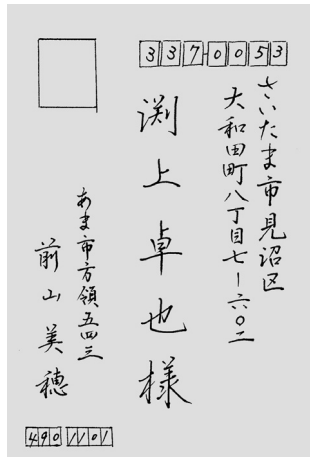 337-0053
さいたま市見沼区
大和田町八丁目七ー六〇二
渕上卓也様
あま市方領五四三
前山美穂
490 1101